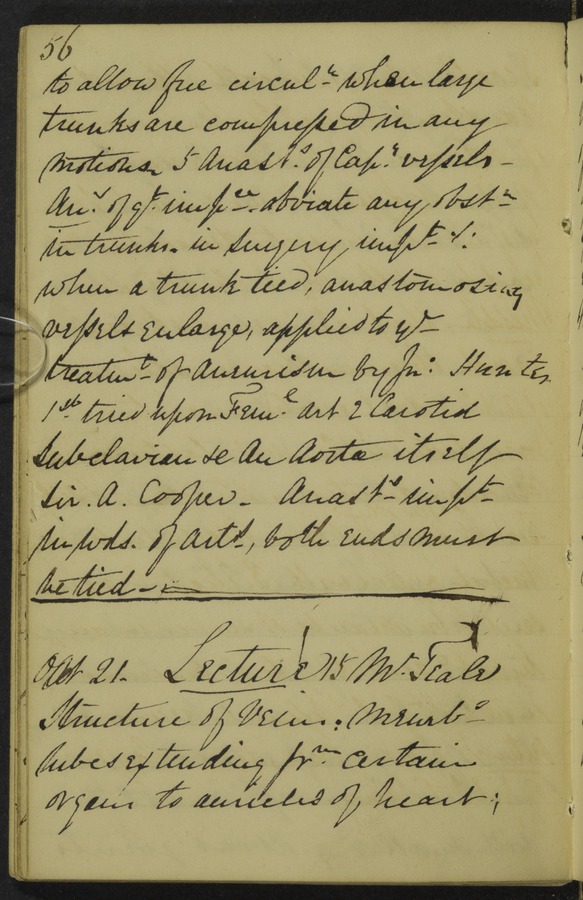 56
to allow free circulⁿ when large
trunks are compressed in any
motions. 5 Anastˢ. of Capʸ vessels -
Anˢ. of gᵗ. impᶜᵉ. obviate any obstⁿ
in trunks. in Surgery impᵗ
when a trunk tied, anastomosing
vessels enlarge, applied to yᵉ
treatmᵗ of aneurism by Jnᵒ: Hunter
1ˢᵗ tried upon Femˡ art 2 Carotid
Subclavian &c An Aorta itself
Sir. A. Cooper - Anastˢ impᵗ
in wds. of artˢ, both ends must
be tied -
Oct 21. Lecture 15 Mʳ. Teale
Structure of Veins: Membˢ
tubes extending frᵐ certain
organs to auricles of heart;